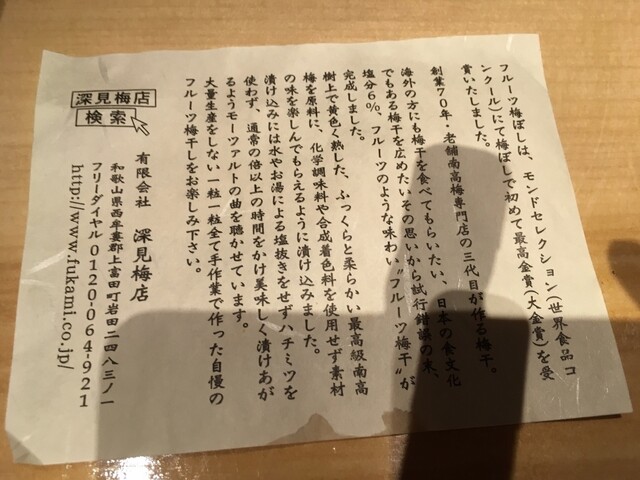 フルーツ梅ぼしは、モンドセレクション(世界食品コ
ンクール)にて梅ぼしで初めて最高金賞(大金賞)を受
賞いたしました。
創業70年・老舗南高梅専門店の三代目が作る梅干。
海外の方にも梅干を食べてもらいたい、日本の食文化
でもある梅干を広めたいその思いから試行錯誤の末、
塩分6%、フルーツのような味わい"フルーツ梅干"が
完成しました。
樹上で黄色く熟した、ふっくらと柔らかい最高級南高
梅を原料に、化学調味料や合成着色料を使用せず素材
の味を楽しんでもらえるように漬け込みました。
漬け込みには水やお湯による塩抜きをせずハチミツを
使わず、通常の倍以上の時間をかけ美味しく漬けあが
るようモーツァルトの曲を聴かせています。
大量生産をしない一粒一粒全て手作業で作った自慢の
フルーツ梅干しをお楽しみ下さい。
有限会社 深見梅店
和歌山県西牟婁郡上富田町岩田二四八三ノ一
フリーダイヤル 0120-064-921
http://www.fukami.co.jp/
深見梅店
検索